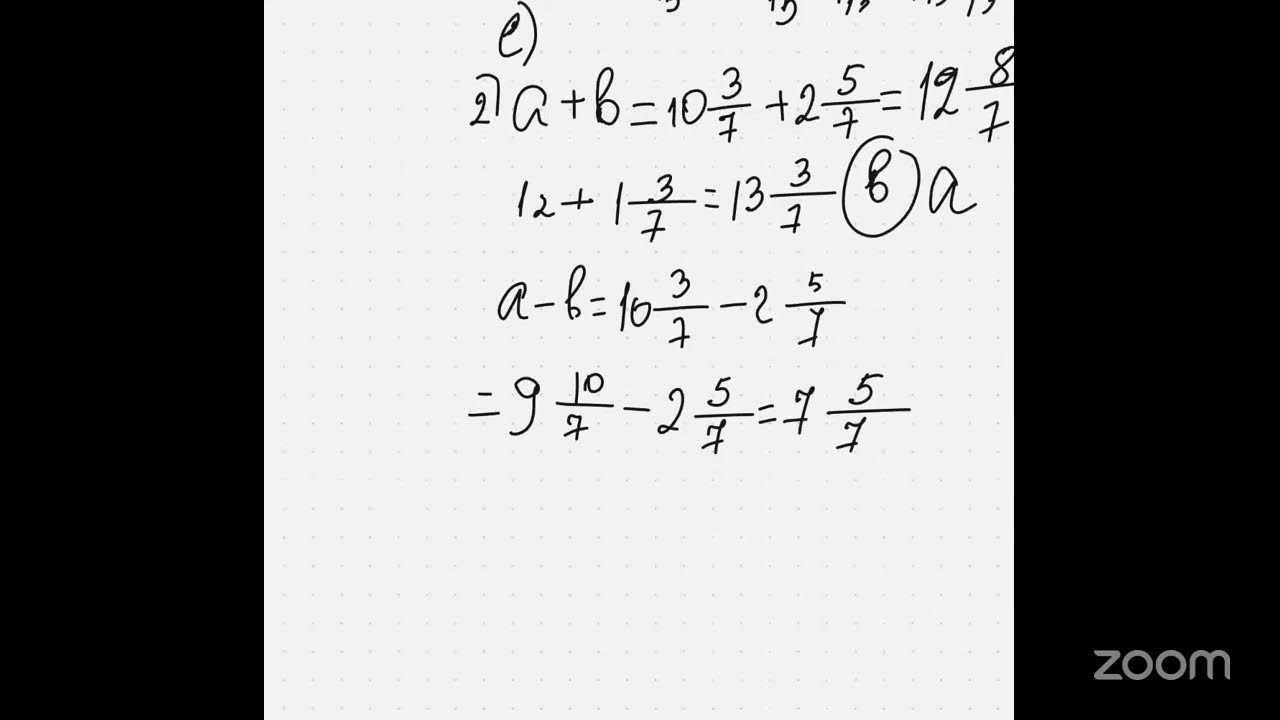 e)
2) a + b = 10 3/7 + 2 5/7 = 12 8/7
12 + 1 3/7 = 13 3/7 (b) a
a - b = 10 3/7 - 2 5/7
= 9 10/7 - 2 5/7 = 7 5/7
zoom